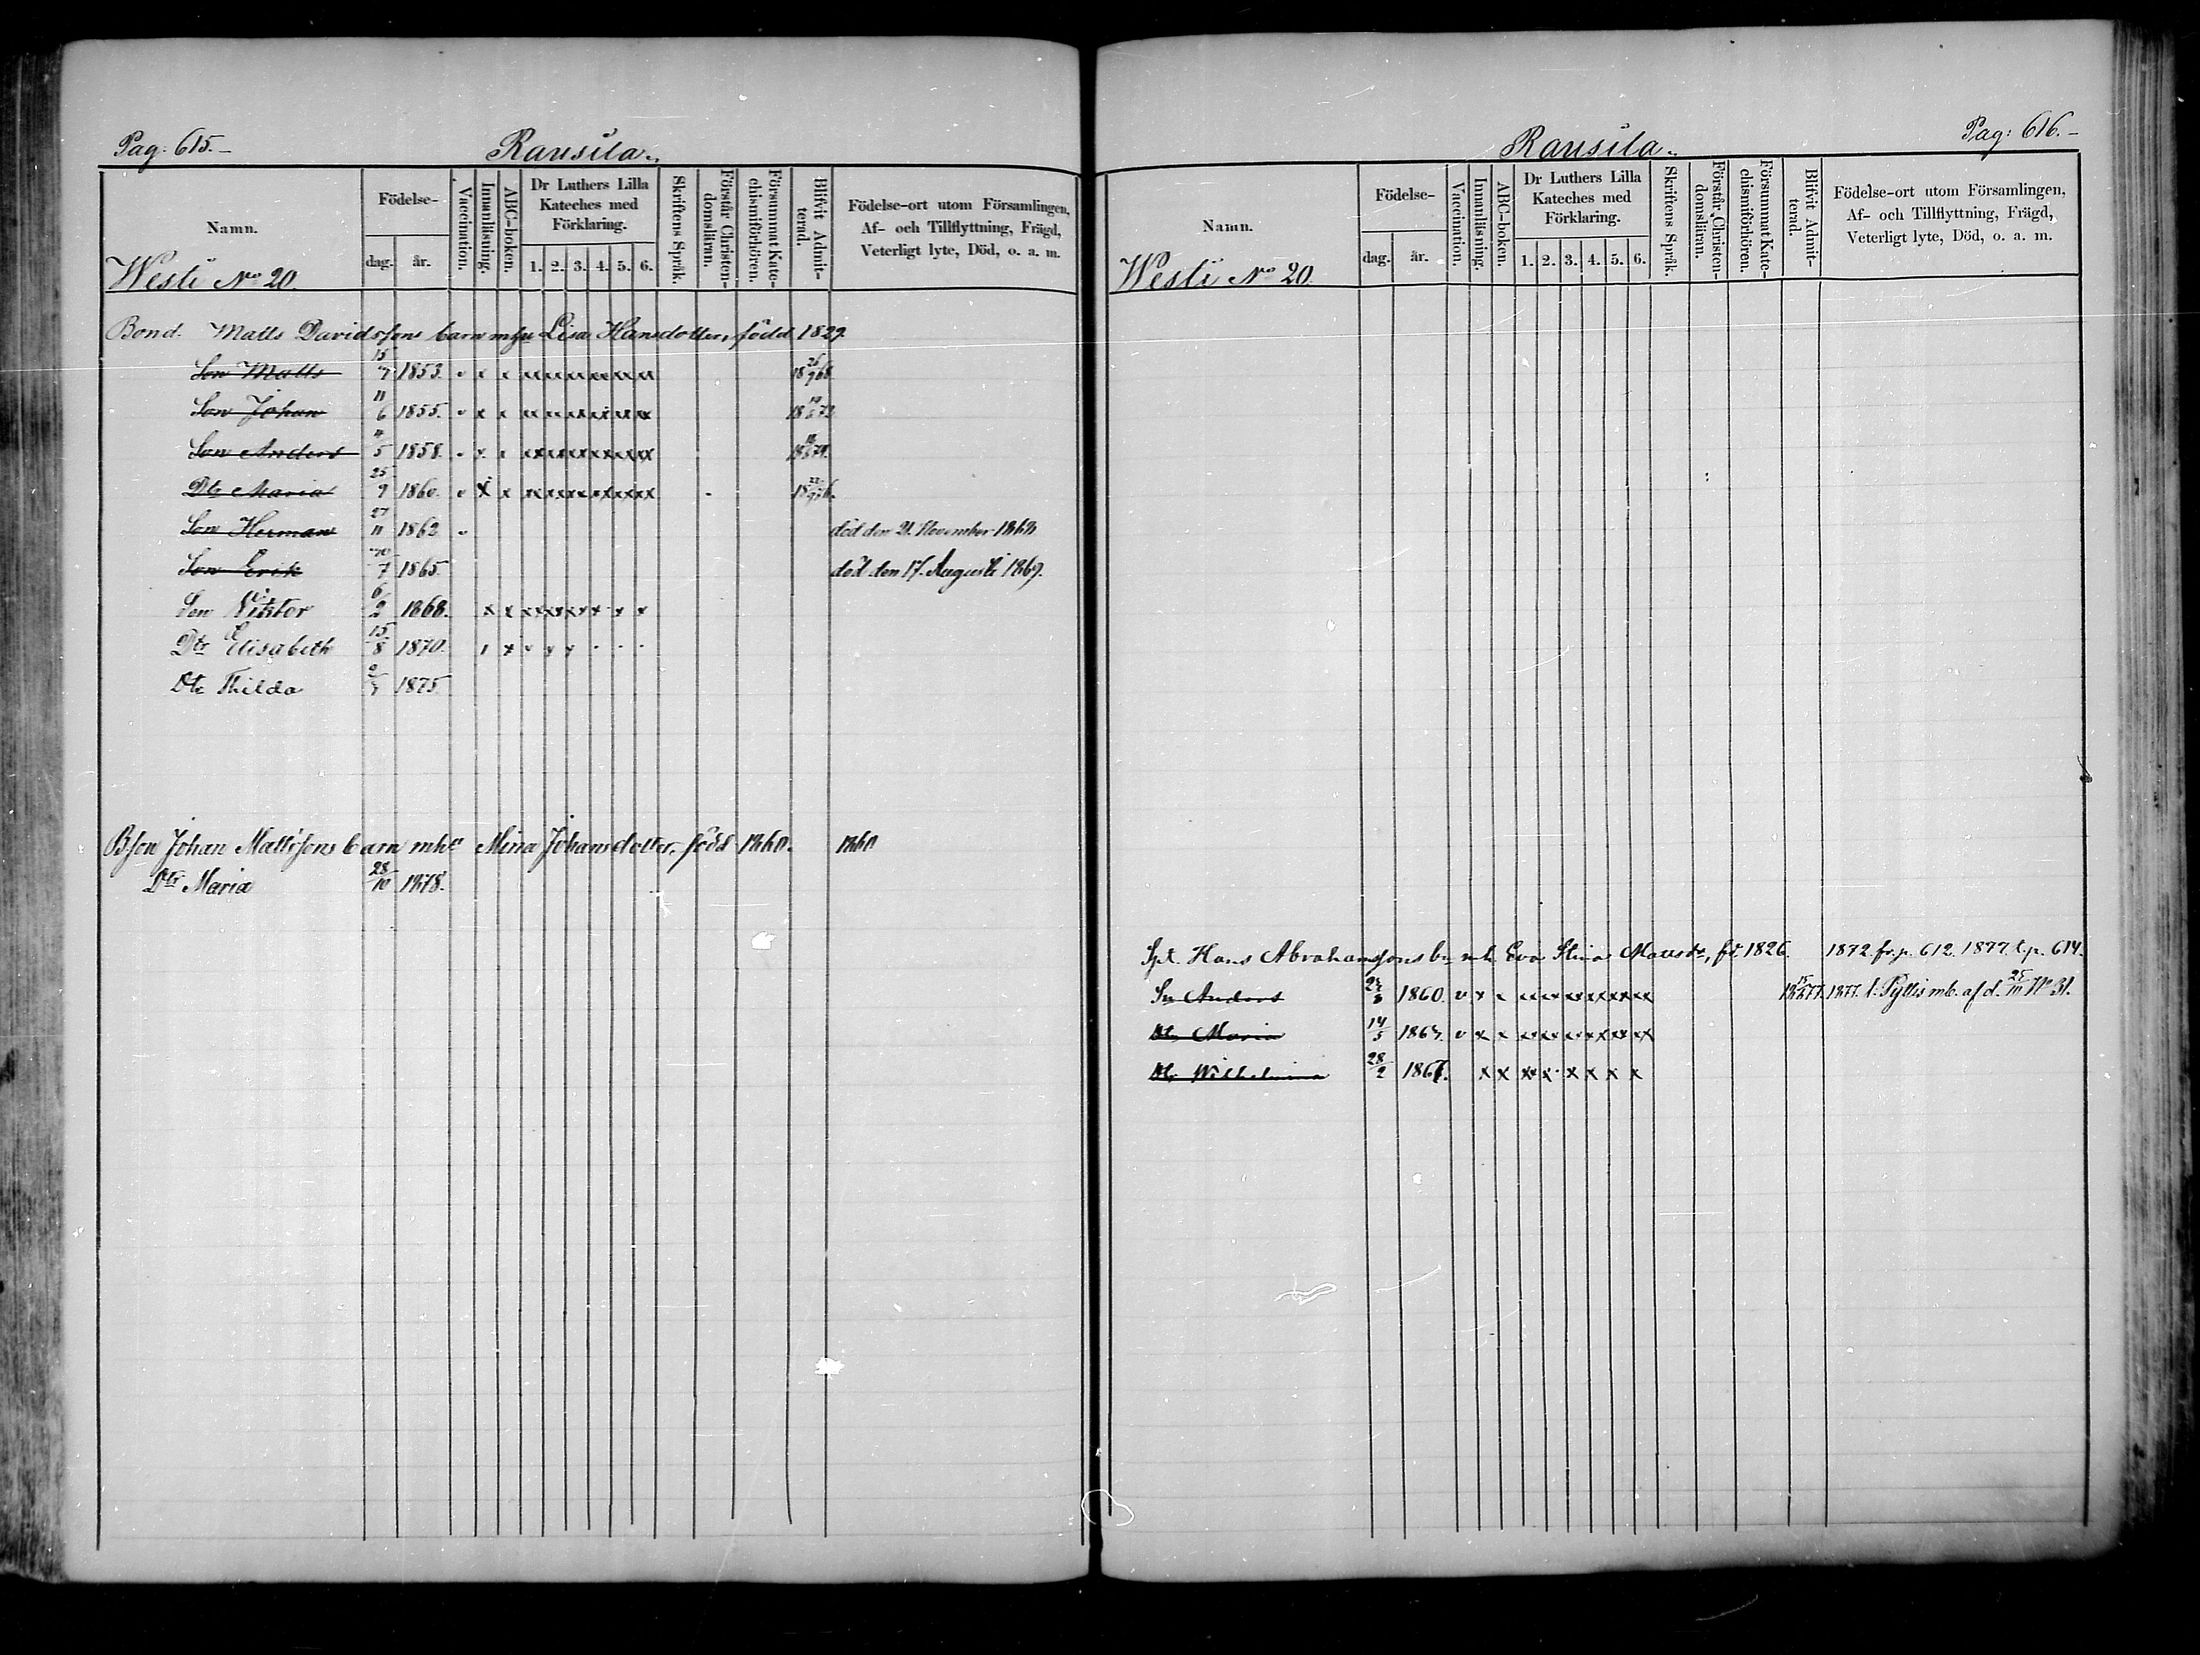 Pag: 615.–
Ransila.
Namn.
Födelse-
dag. år.
Vaccination.
Innanläsning.
ABC-boken.
Dr Luthers Lilla
Kateches med
Förklaring.
1. 2. 3. 4. 5. 6.
Skriftens Språk.
Förstår Christen-
domsläran.
Försummat Kate-
chismiförhören.
Blifvit Admit-
terad.
Födelse-ort utom Församlingen,
Af- och Tillflyttning, Frägd,
Veterligt lyte, Död, o. a. m.
Westi No 20.
Bond. Matts Davidssons barn mhu Lisa Hansdotter, född 1829.
Son Matts 18/7 1853. v x x 18 26/9 68
Son Johan 11/6 1855. v x x
Son Anders 4/5 1858. v x
Dtr Maria 25/9 1860. v x x
Son Herman 27/11 1862 v död den 21. November 1868
Son Erik 7 1865 död den 17. Augusti 1869.
Son Viktor 6/2 1868. x x
Dtr Elisabeth 15/8 1870.
Dtr Thilda 1875
Bson Johan Mattssons barn mhu Mina Johansdotter, född 1860. 1860
Dtr Maria 28/10 1878.
Pag: 616.–
Ransila.
Namn.
Födelse-
dag. år.
Vaccination.
Innanläsning.
ABC-boken.
Dr Luthers Lilla
Kateches med
Förklaring.
1. 2. 3. 4. 5. 6.
Skriftens Språk.
Förstår Christen-
domsläran.
Försummat Kate-
chismiförhören.
Blifvit Admit-
terad.
Födelse-ort utom Församlingen,
Af- och Tillflyttning, Frägd,
Veterligt lyte, Död, o. a. m.
Westi No 20.
Hans Abrahamssons bn mh. Eva Stina Mattsdr, fd. 1826. 1872. fr. p. 612. 1877 t. p. 614.
Sn Anders 1860. v x 1877. t. Pyttis mb. af d. 25/11 No 31.
Dtr Maria 14/5 1864. v x x
Dtr Wilhelmina 28/2 1867. x x x x x x x x